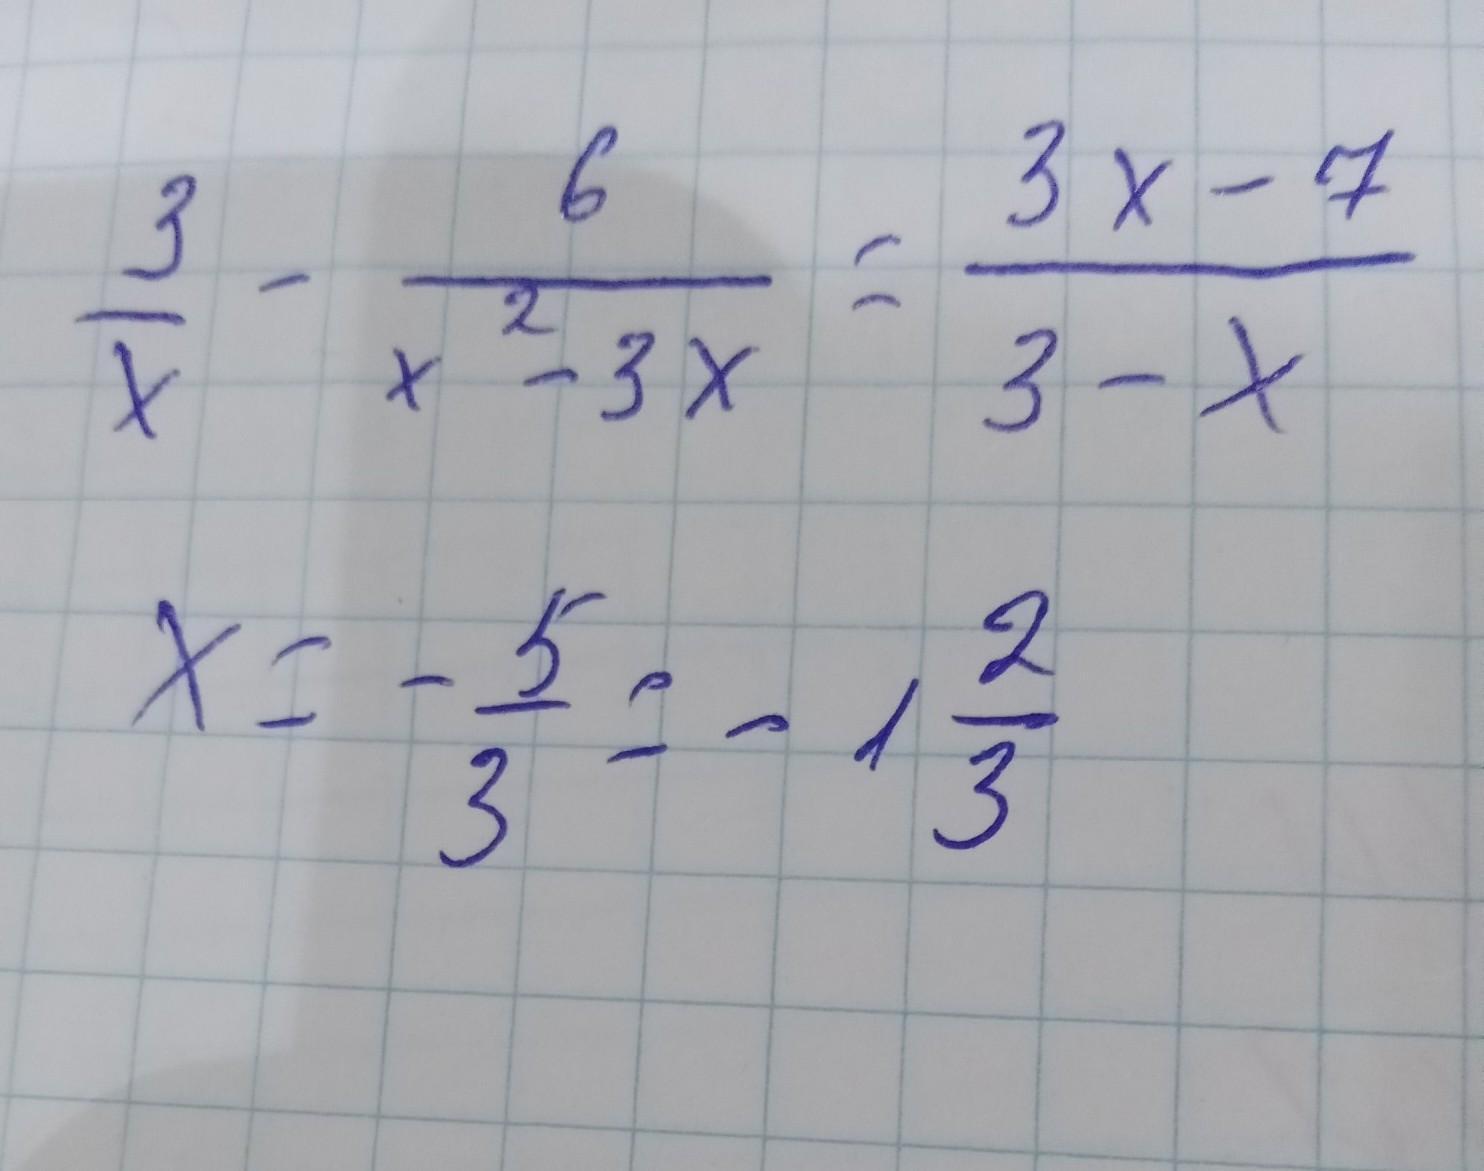 3/x - 6/(x² - 3x) = (3x - 7)/(3 - x)
x = - 5/3 = - 1 2/3